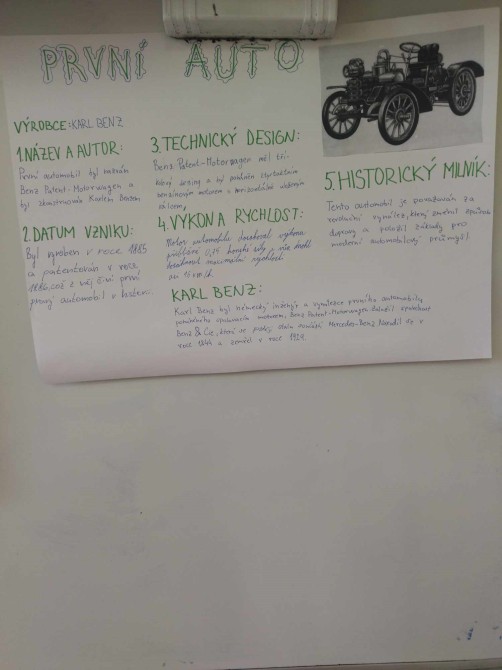 PRVNÍ AUTO
VÝROBCE: KARL BENZ
1.NÁZEV A AUTOR:
První automobil byl nazván
Benz Patent-Motorwagen a
byl zkonstruován Karlem Benzem.
2.DATUM VZNIKU:
Byl vyroben v roce 1885
a patentován v roce
1886, což z něj činí první
pravý automobil v historii.
3.TECHNICKÝ DESIGN:
Benz Patent-Motorwagen měl tří-
kolový design a byl poháněn čtyřtaktním
benzínovým motorem s horizontálně uloženým
válcem.
4.VÝKON A RYCHLOST:
Motor automobilu dosahoval výkonu
přibližně 0,75 koňské síly a vůz mohl
dosáhnout maximální rychlosti
16 km/h.
KARL BENZ:
Karl Benz byl německý inženýr a vynálezce prvního automobilu
motorem, Benz Patent-Motorwagen. Založil společnost
Benz & Cie, která se později stala součástí Mercedes-Benz. Narodil se v
roce 1844 a zemřel v roce 1929.
5.HISTORICKÝ MILNÍK:
Tento automobil je považován za
revoluční vynález, který změnil způsob
dopravy a položil základy pro
moderní automobilový průmysl.